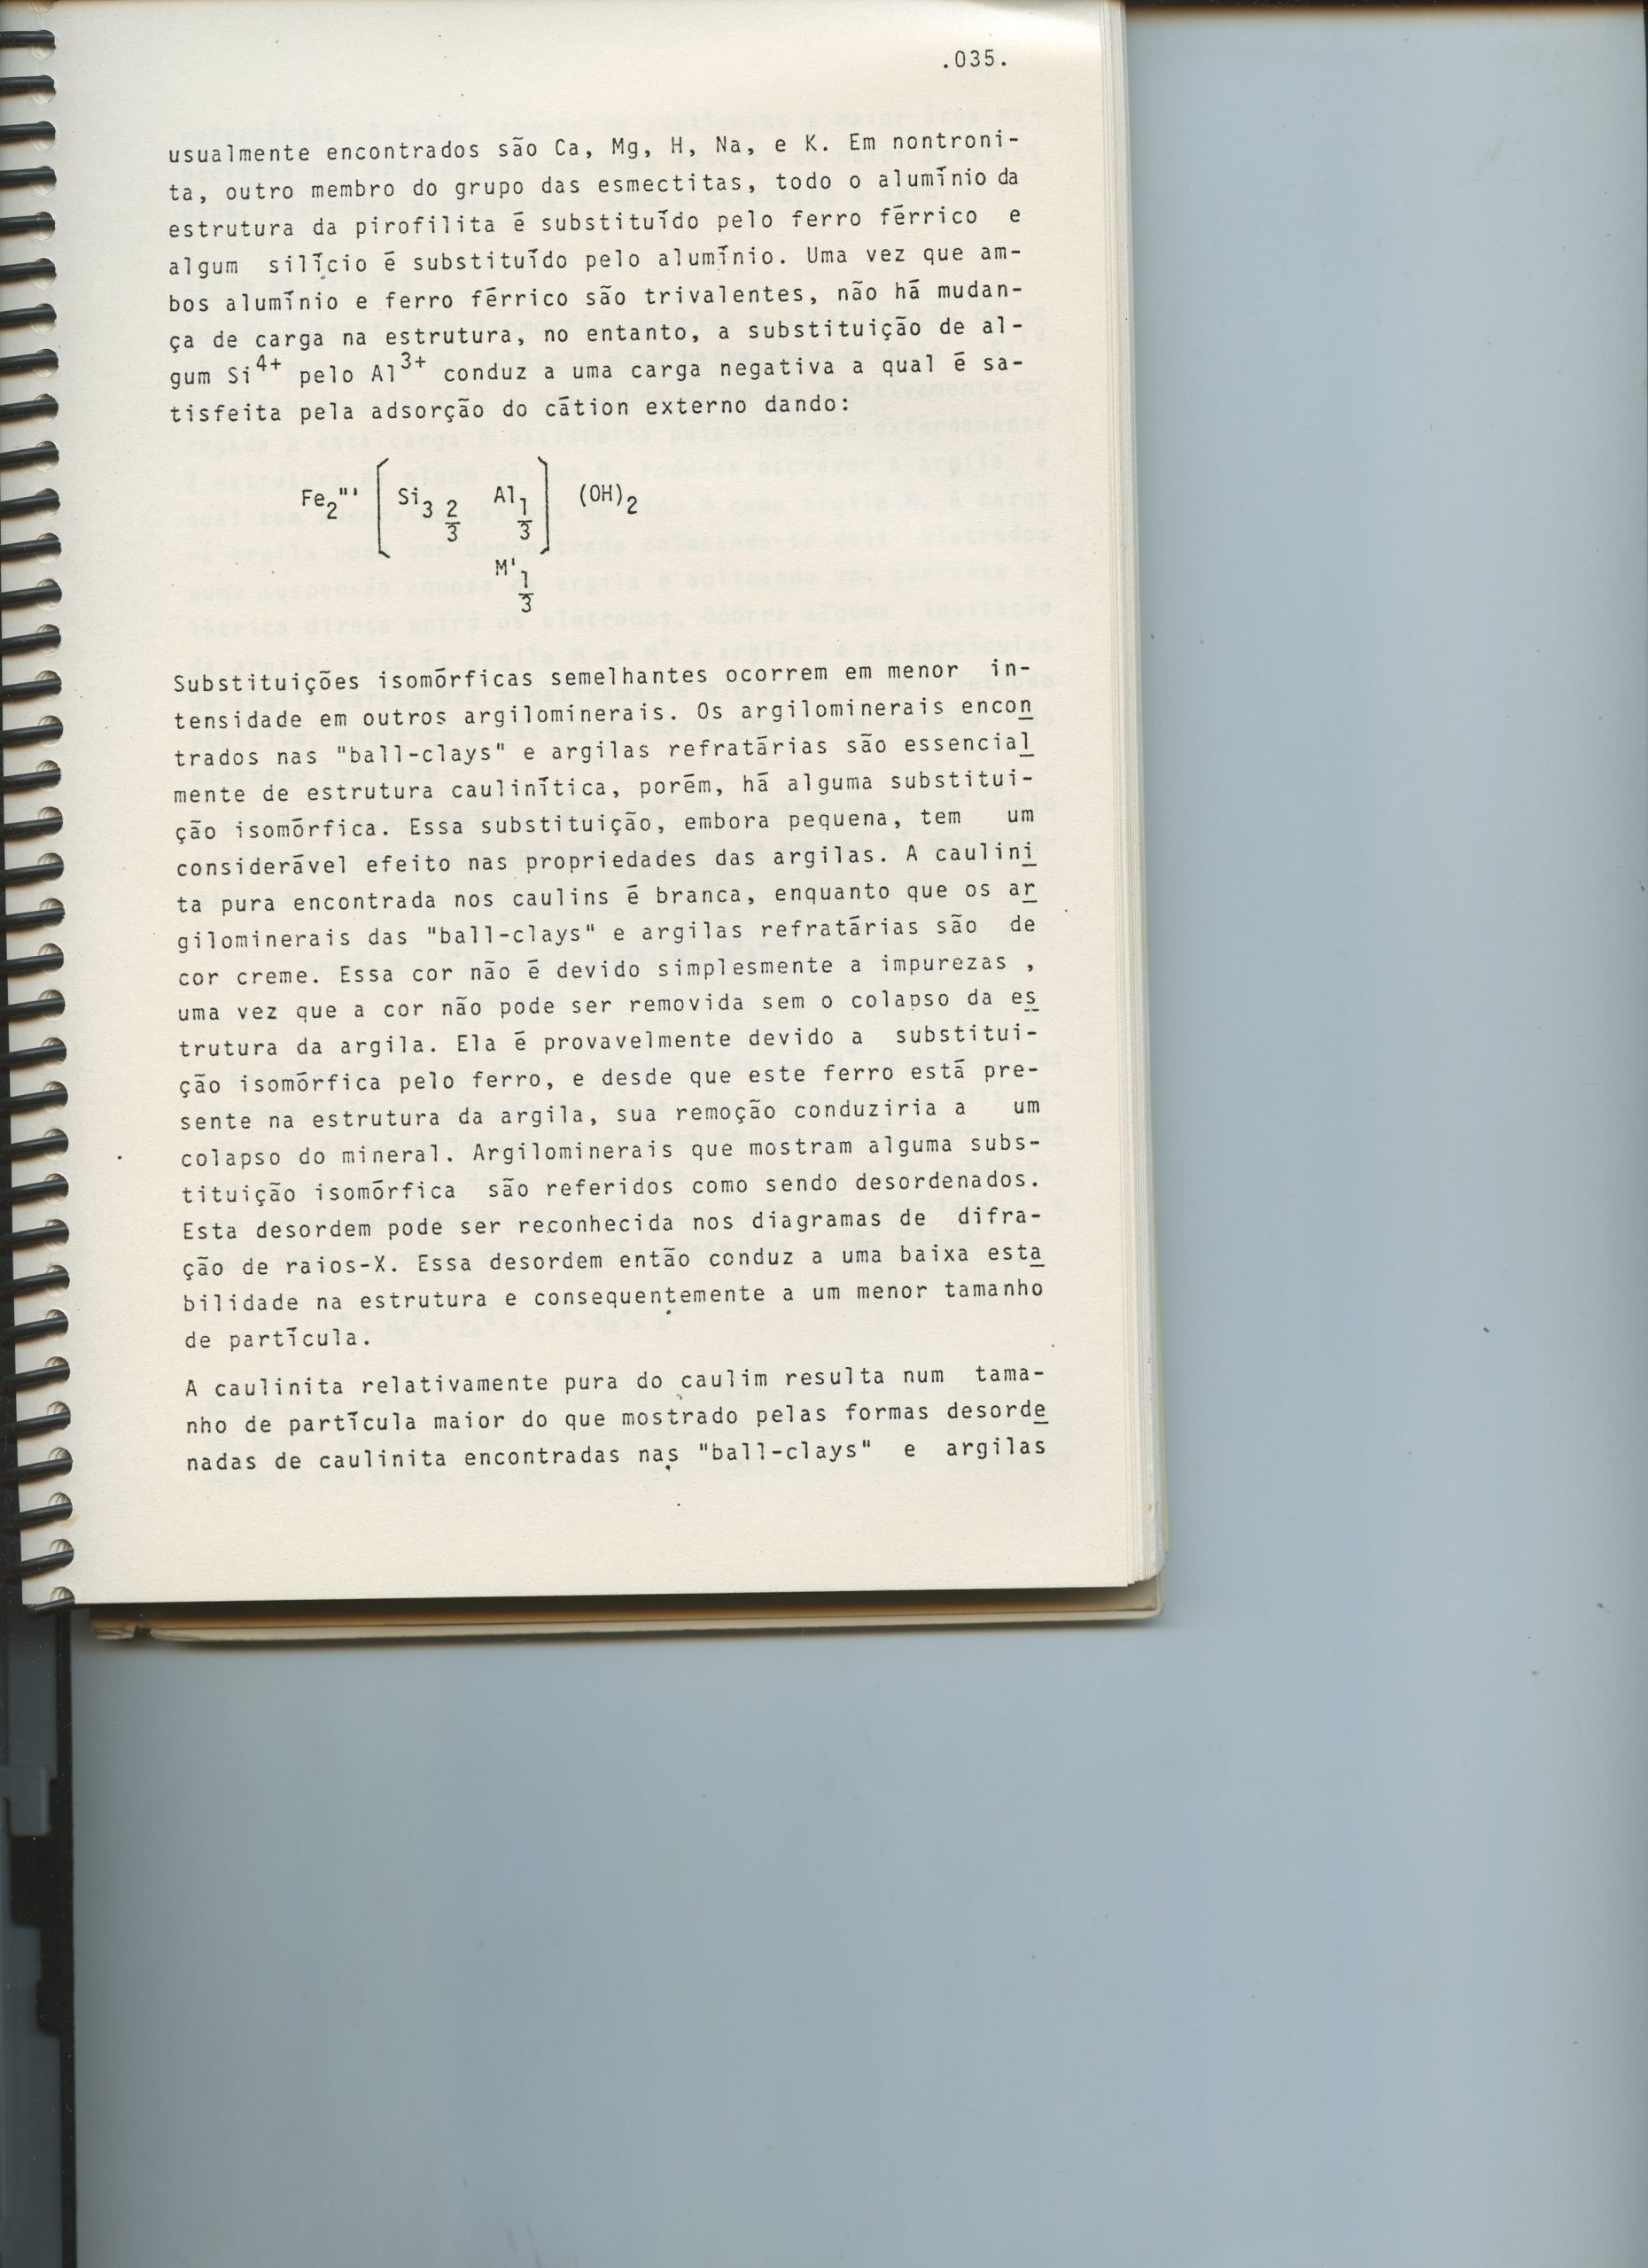 .035.
usualmente encontrados são Ca, Mg, H, Na, e K. Em nontroni-
ta, outro membro do grupo das esmectitas, todo o alumínio da
estrutura da pirofilita é substituído pelo ferro férrico e
algum silício é substituído pelo alumínio. Uma vez que am-
bos alumínio e ferro férrico são trivalentes, não há mudan-
ça de carga na estrutura, no entanto, a substituição de al-
gum Si⁴⁺ pelo Al³⁺ conduz a uma carga negativa a qual é sa-
tisfeita pela adsorção do cátion externo dando:
Fe₂"' [ Si₃ 2/3 Al 1/3 ] (OH)₂
M' 1/3
Substituições isomórficas semelhantes ocorrem em menor in-
tensidade em outros argilominerais. Os argilominerais encon
trados nas "ball-clays" e argilas refratárias são essencial
mente de estrutura caulinítica, porém, há alguma substitui-
ção isomórfica. Essa substituição, embora pequena, tem um
considerável efeito nas propriedades das argilas. A caulini
ta pura encontrada nos caulins é branca, enquanto que os ar
gilominerais das "ball-clays" e argilas refratárias são de
cor creme. Essa cor não é devido simplesmente a impurezas ,
uma vez que a cor não pode ser removida sem o colapso da es
trutura da argila. Ela é provavelmente devido a substitui-
ção isomórfica pelo ferro, e desde que este ferro está pre-
sente na estrutura da argila, sua remoção conduziria a um
colapso do mineral. Argilominerais que mostram alguma subs-
tituição isomórfica são referidos como sendo desordenados.
Esta desordem pode ser reconhecida nos diagramas de difra-
ção de raios-X. Essa desordem então conduz a uma baixa esta
bilidade na estrutura e consequentemente a um menor tamanho
de partícula.
A caulinita relativamente pura do caulim resulta num tama-
nho de partícula maior do que mostrado pelas formas desorde
nadas de caulinita encontradas nas "ball-clays" e argilas